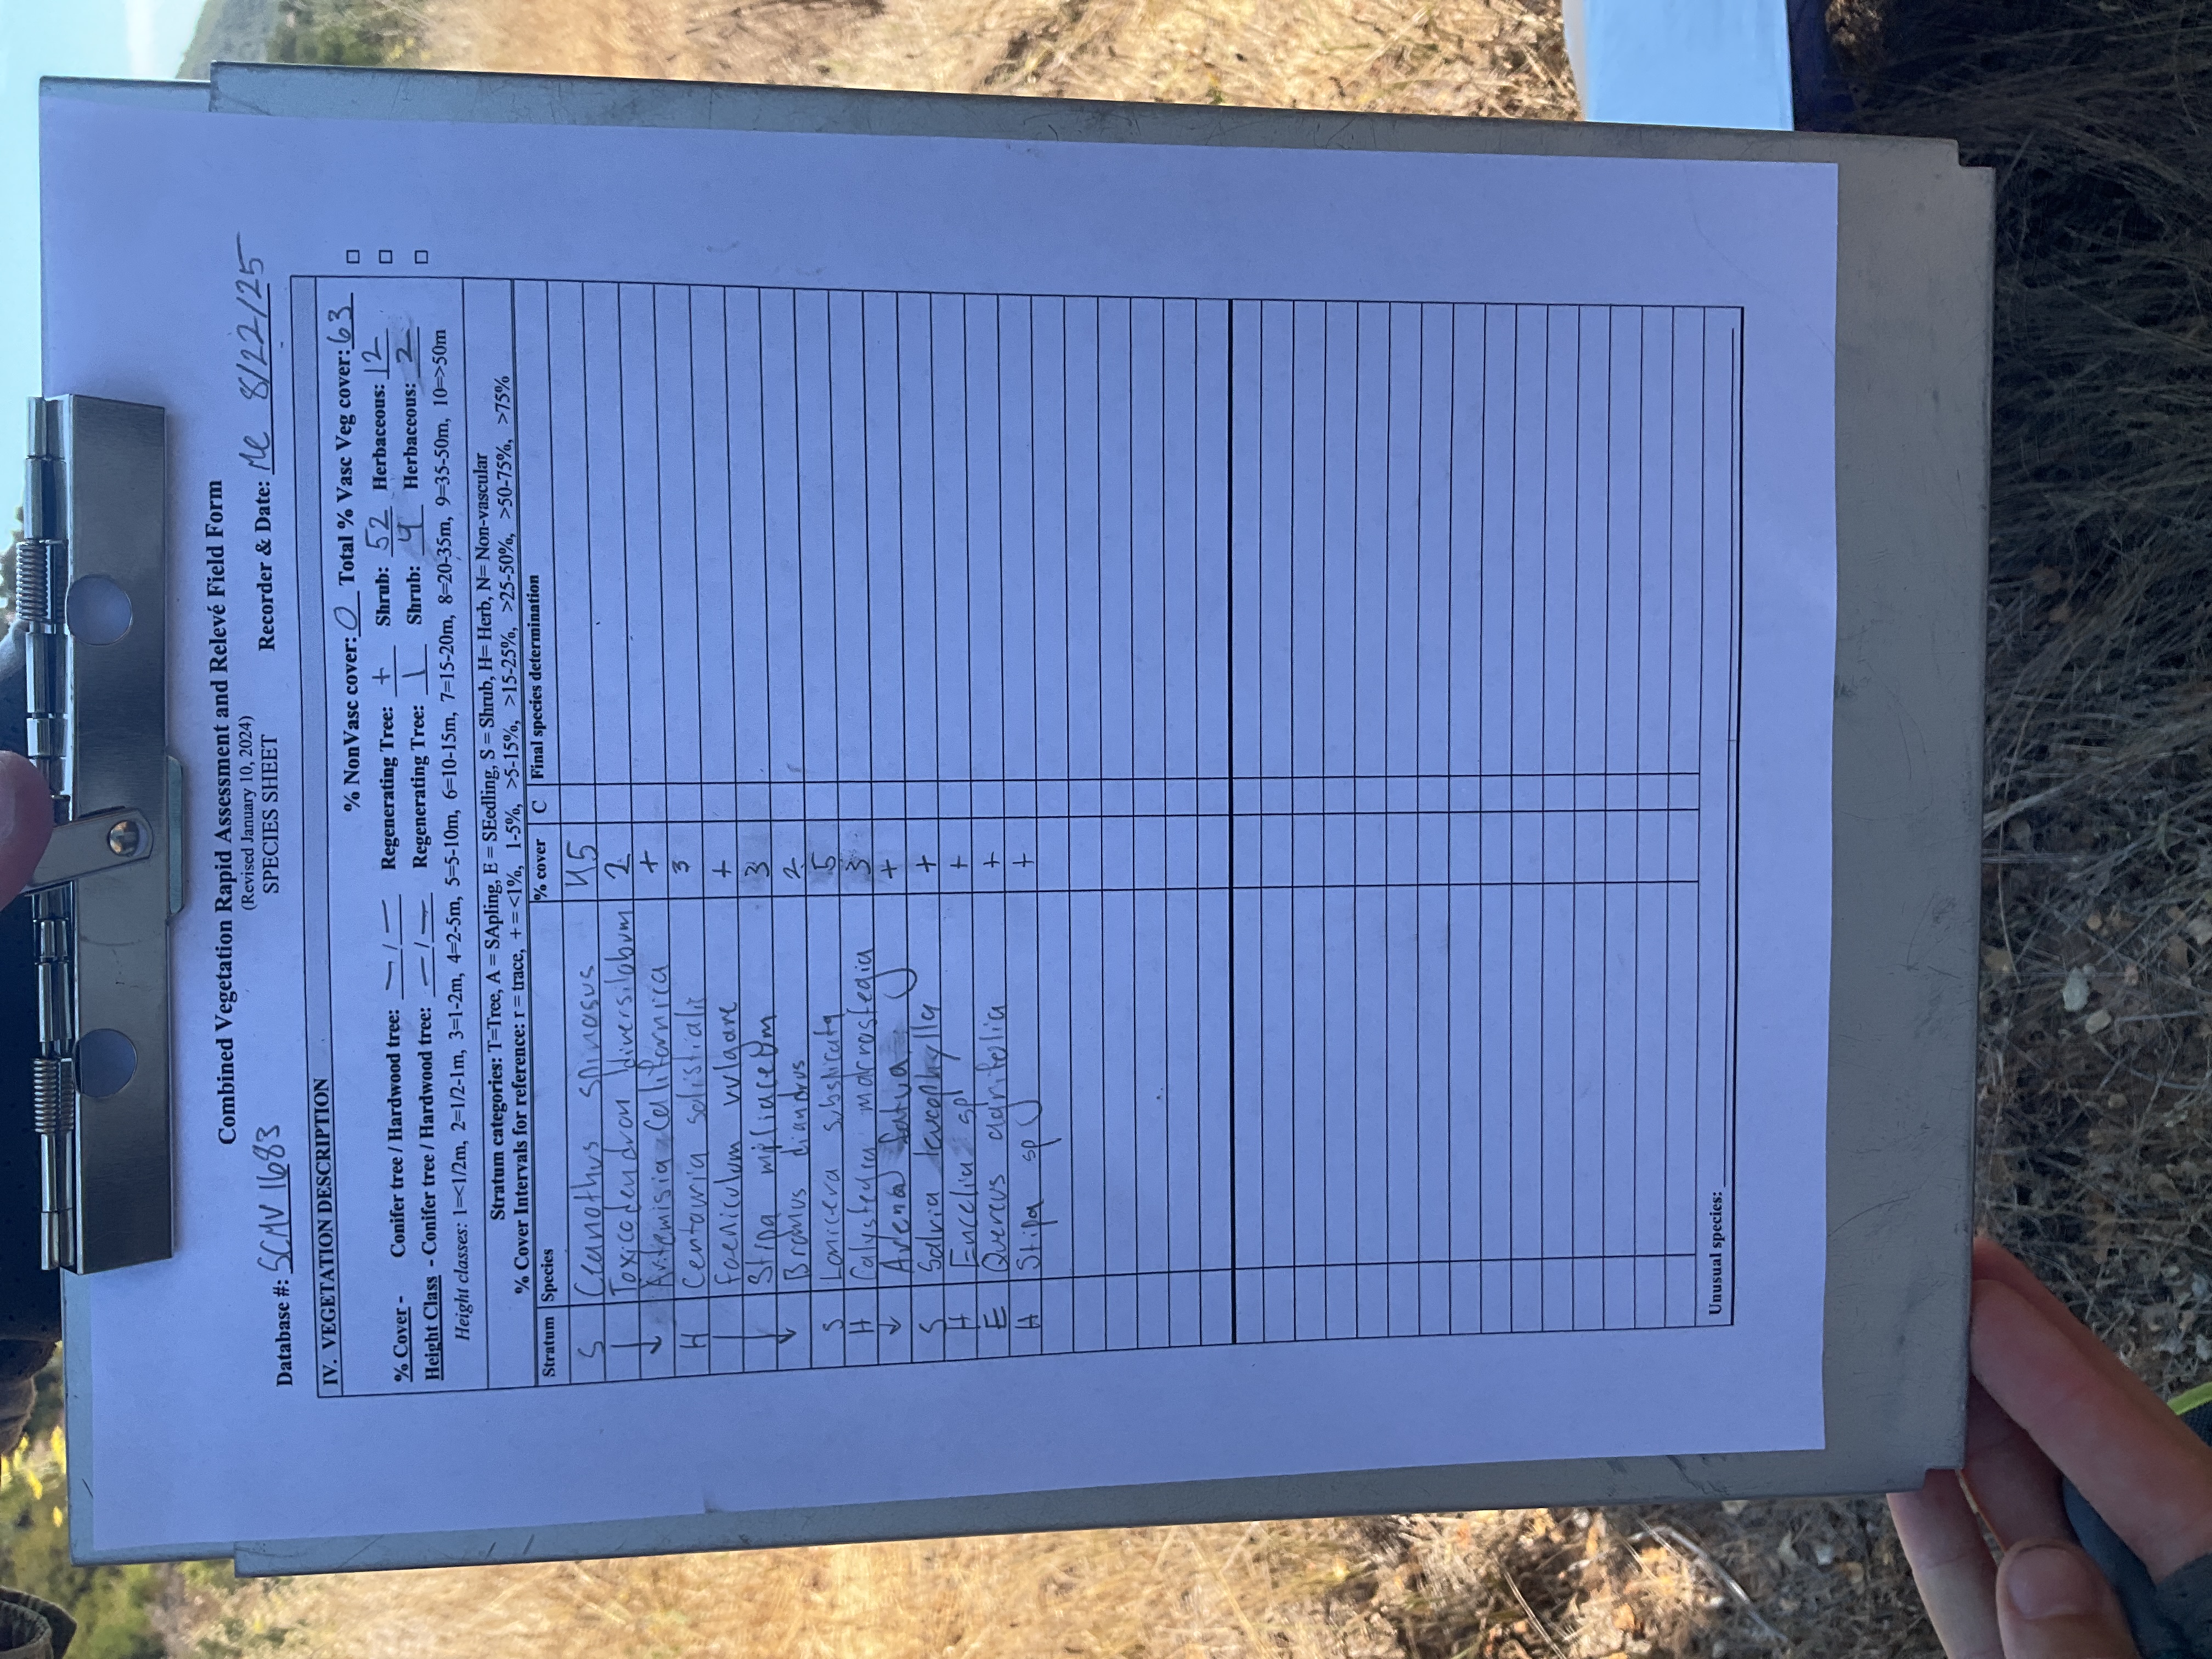 Combined Vegetation Rapid Assessment and Relevé Field Form
(Revised January 10, 2024)
SPECIES SHEET
Database #: SCMV1683 Recorder & Date: 8/22/25
IV. VEGETATION DESCRIPTION
% NonVasc cover: 0 Total % Vasc Veg cover: 63
% Cover - Conifer tree / Hardwood tree: — / — Regenerating Tree: + Shrub: 52 Herbaceous: 12
Height Class - Conifer tree / Hardwood tree: — / — Regenerating Tree: 1 Shrub: 4 Herbaceous: 2
Height classes: 1=<1/2m, 2=1/2-1m, 3=1-2m, 4=2-5m, 5=5-10m, 6=10-15m, 7=15-20m, 8=20-35m, 9=35-50m, 10=>50m
Stratum categories: T=Tree, A = SApling, E = SEedling, S = Shrub, H= Herb, N= Non-vascular
% Cover Intervals for reference: r = trace, + = <1%, 1-5%, >5-15%, >15-25%, >25-50%, >50-75%, >75%
Stratum Species % cover C Final species determination
S Ceanothus spinosus 45
| Toxicodendron diversilobum 2
↓ Artemisia californica +
H Centauria solistialis 3
| Foeniculum vulgare +
| Stipa miliacetum 3
↓ Bromus diandrus 2
S Lonicera subspicata 5
H Calystegia macrostegia 3
↓ Avena fatua +
S Salvia leucophylla +
H Encelia sp +
E Quercus agrifolia +
H Stipa sp +
Unusual species: